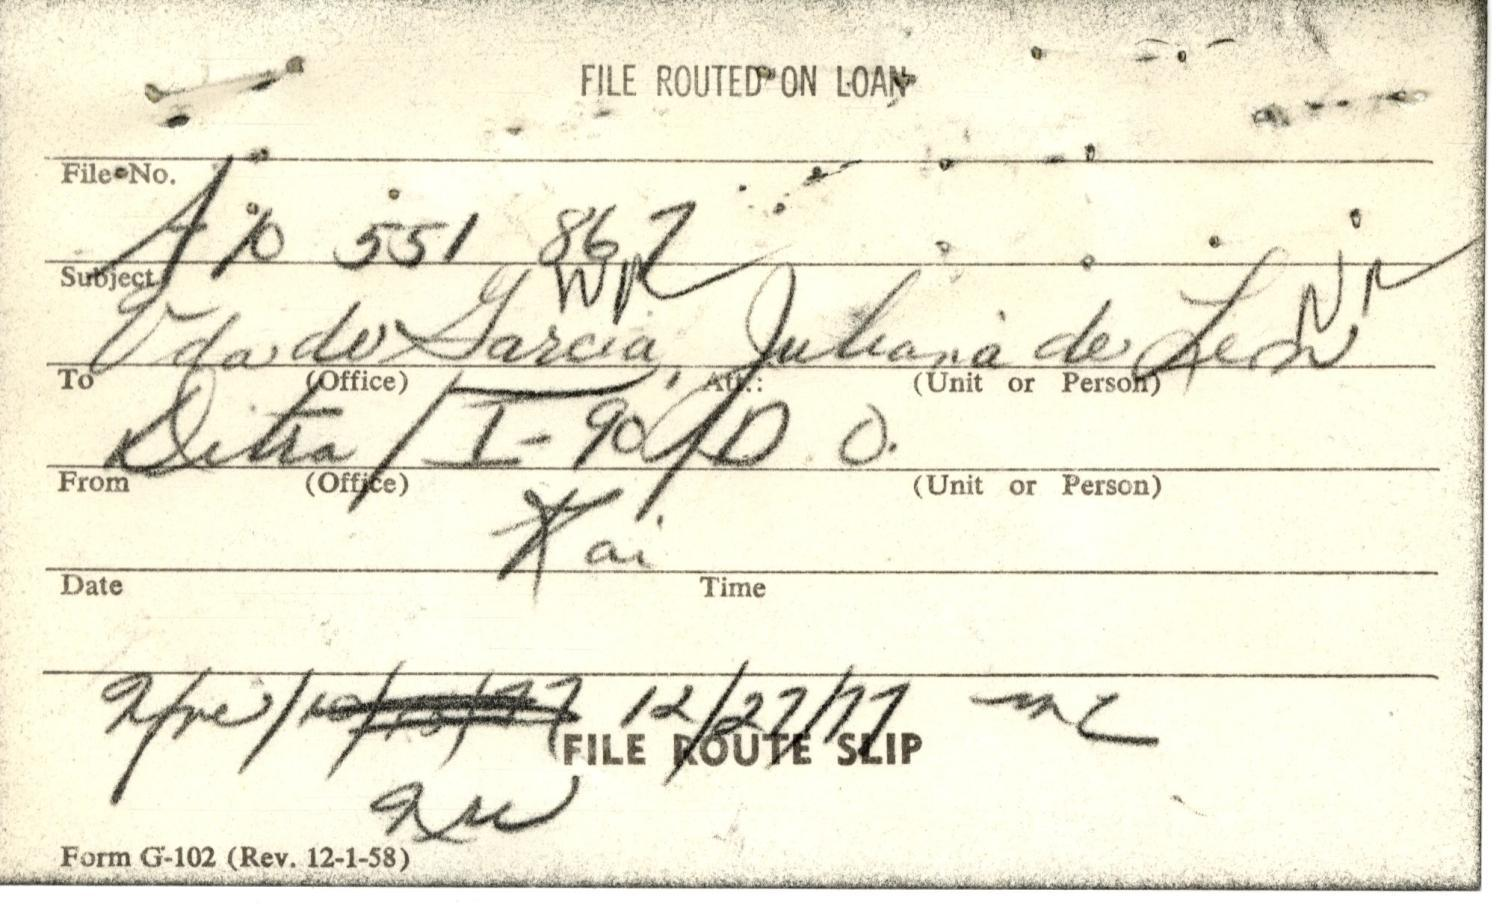 FILE ROUTED ON LOAN
File No.
A10 551 867
Subject
WR NR
Vda de Garcia, Juliana de Leon
To (Office) Att.: (Unit or Person)
/ I-90 / D.O.
From (Office) (Unit or Person)
Kai
Date Time
12/27/77
FILE ROUTE SLIP
Form G-102 (Rev. 12-1-58)